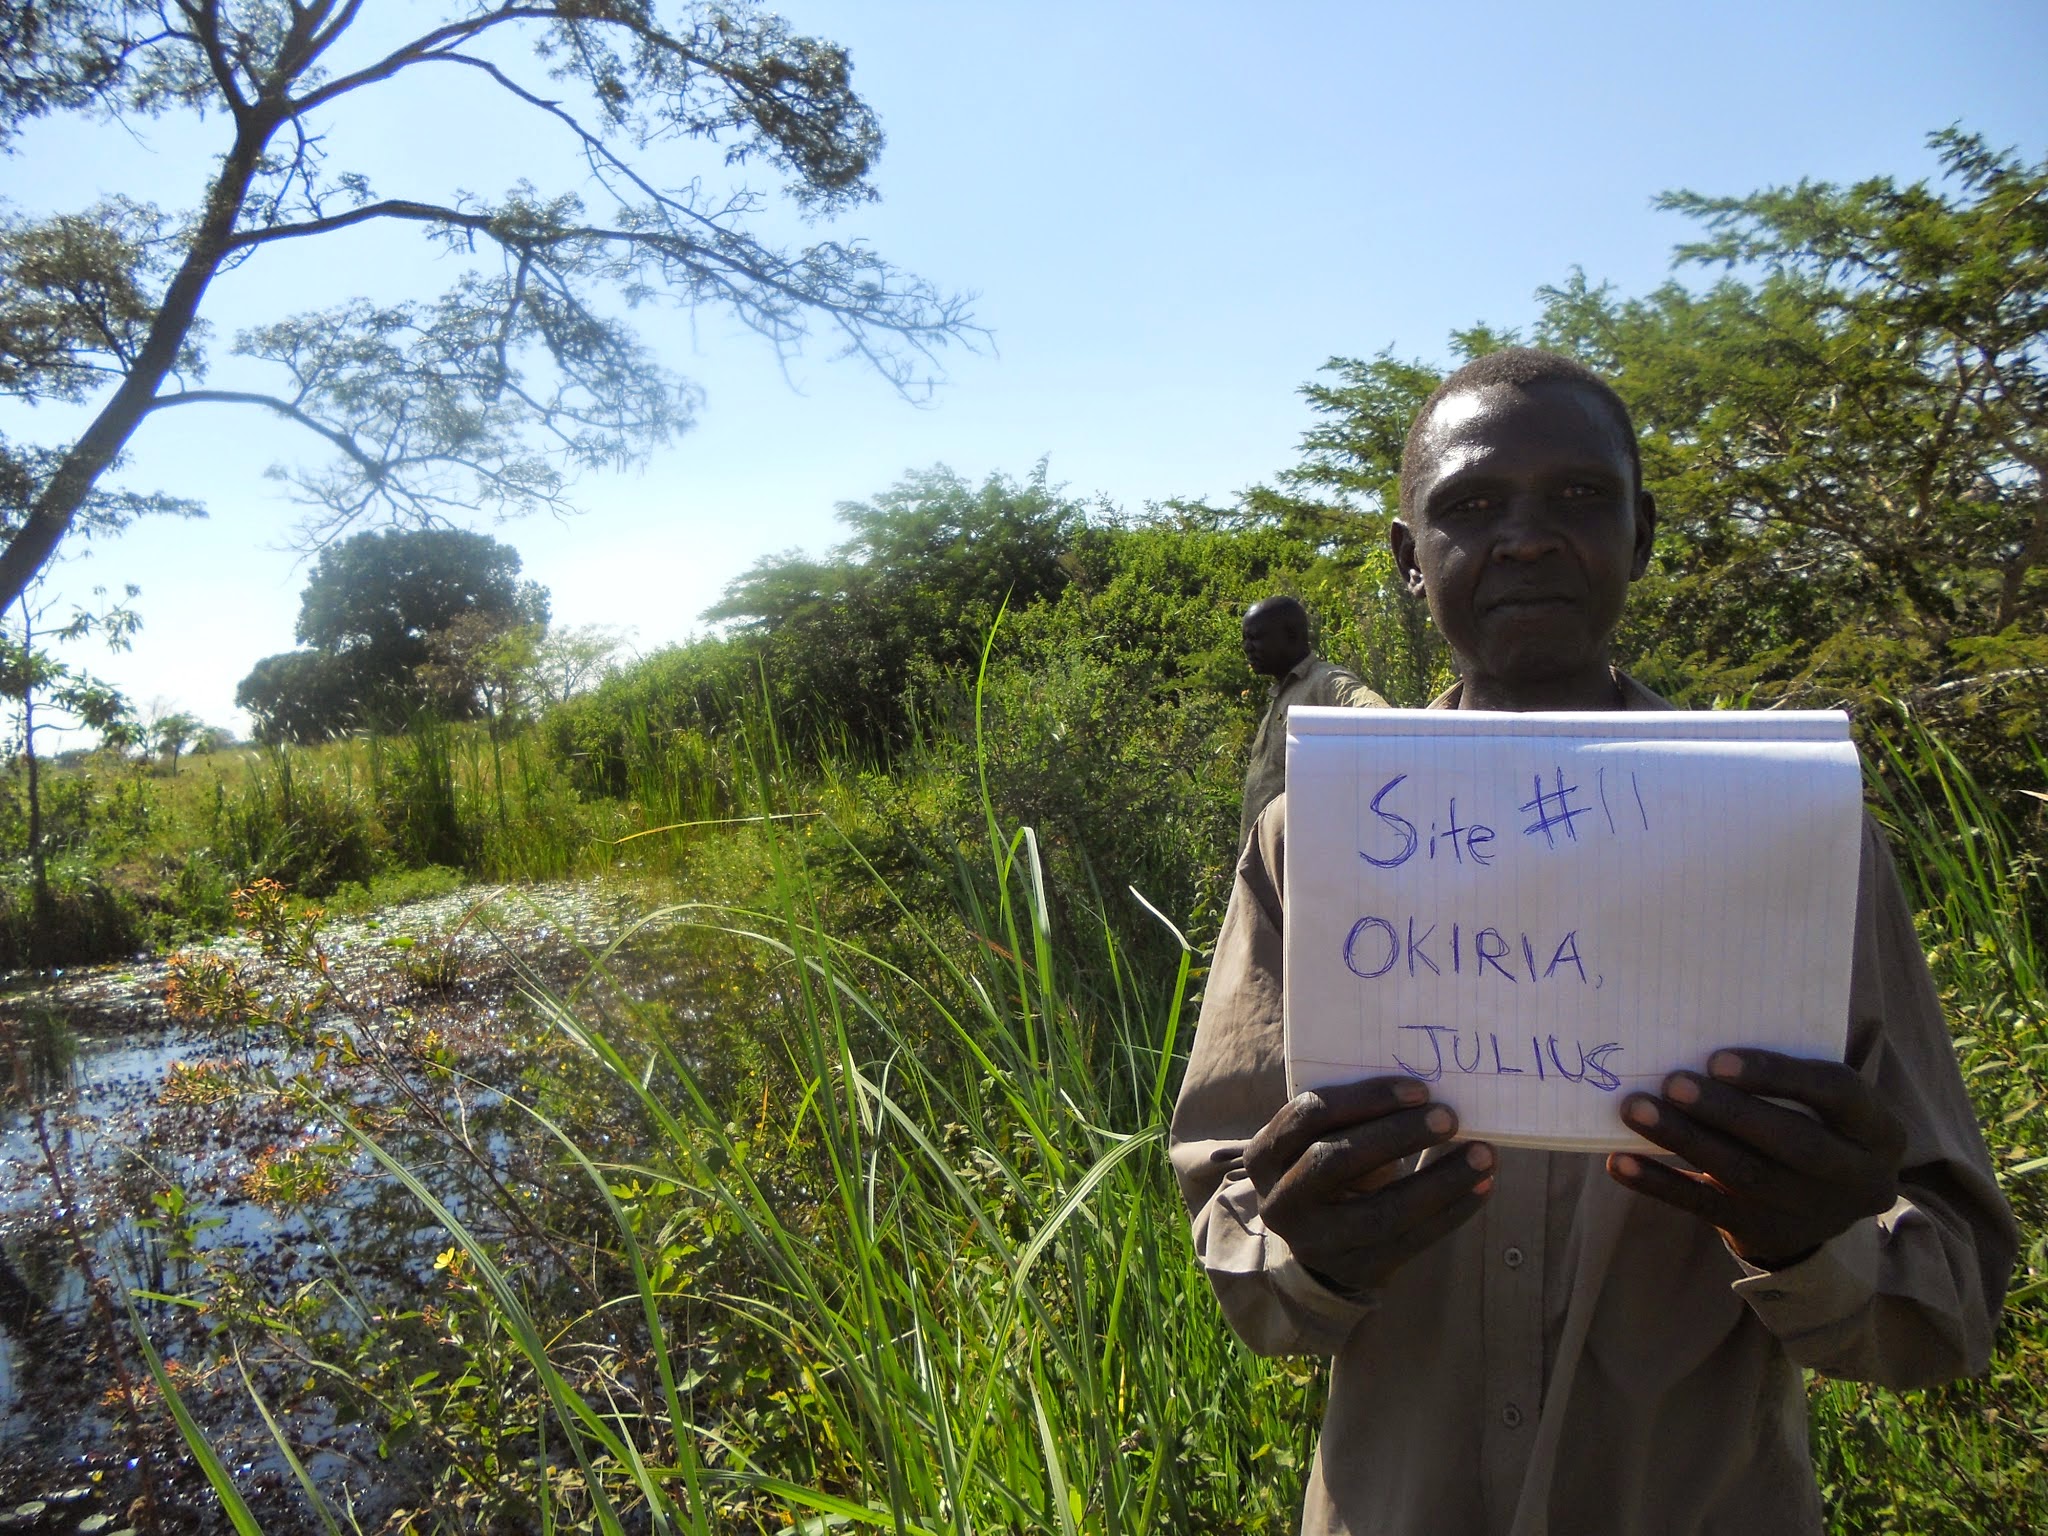 Site #11
OKIRIA,
JULIUS